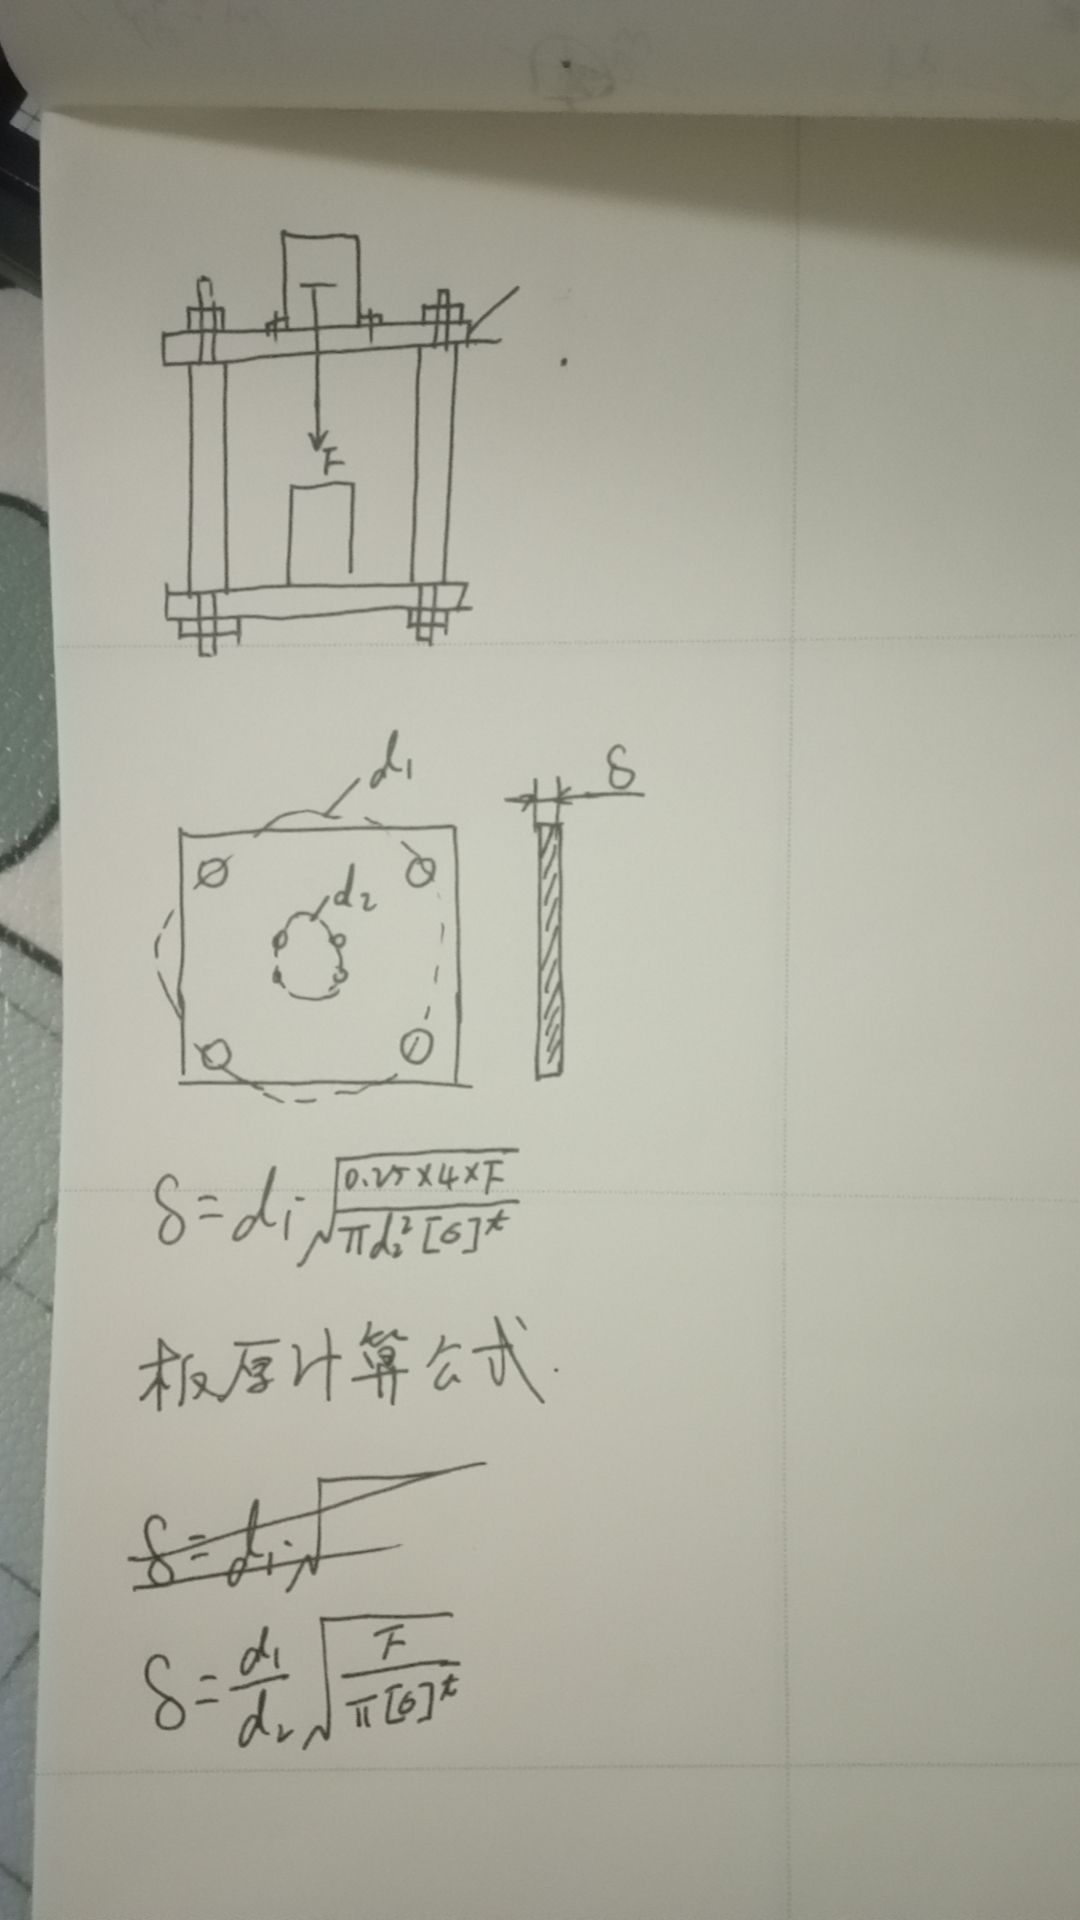 F
d₁
δ
d₂
δ=d₁·√(0.25×4×F/πd₂²[σ]ᵗ)
板厚计算公式.
δ=d₁·√
δ=d₁/d₂√(F/π[σ]ᵗ)